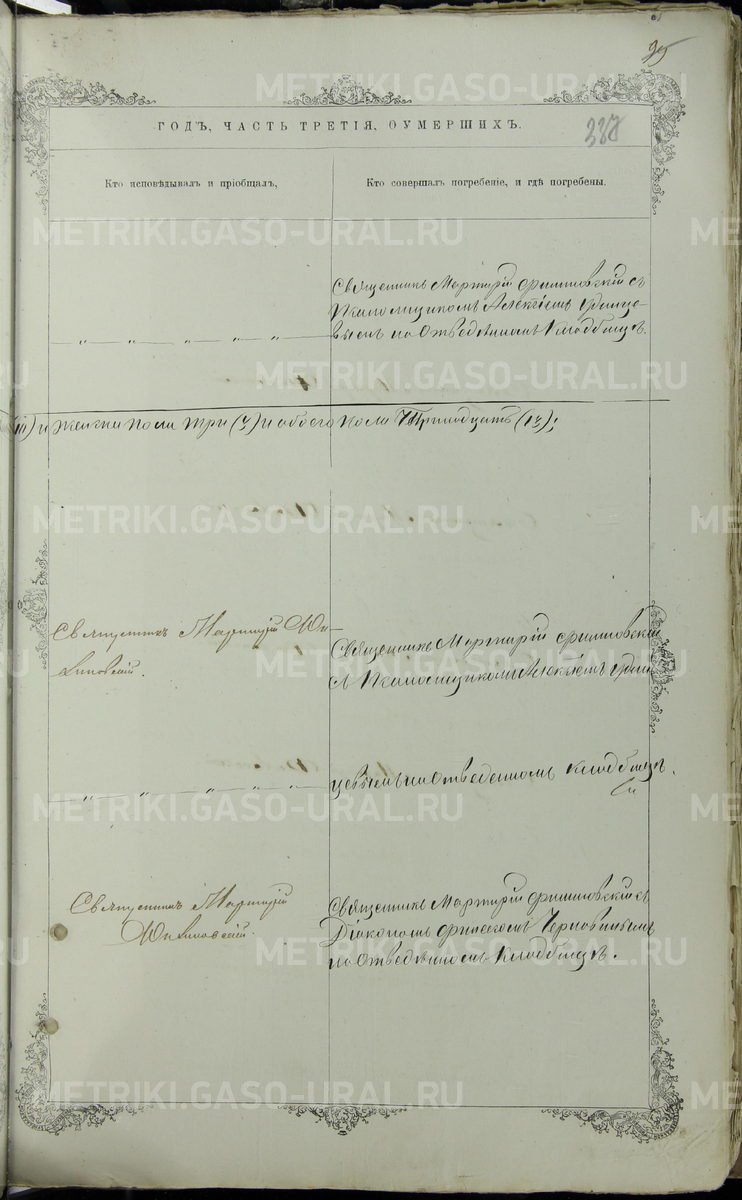 95
ГОДЪ, ЧАСТЬ ТРЕТІЯ, О УМЕРШИХЪ.
338
Кто исповѣдывалъ и пріобщалъ,
Кто совершалъ погребеніе, и гдѣ погребены.
Священникъ Мартирій съ
Псаломщикомъ Алексѣемъ
на Отведенномъ Кладбищѣ.
(10) и женска пола три (3) и обоего пола Тринадцать (13);
Священникъ Мартирій
Священникъ Мартирій
съ Псаломщикомъ Алексѣемъ
на Отведенномъ кладбищѣ.
Священникъ Мартирій
Священникъ Мартирій съ
Діакономъ
на Отведенномъ Кладбищѣ.
METRIKI.GASO-URAL.RU